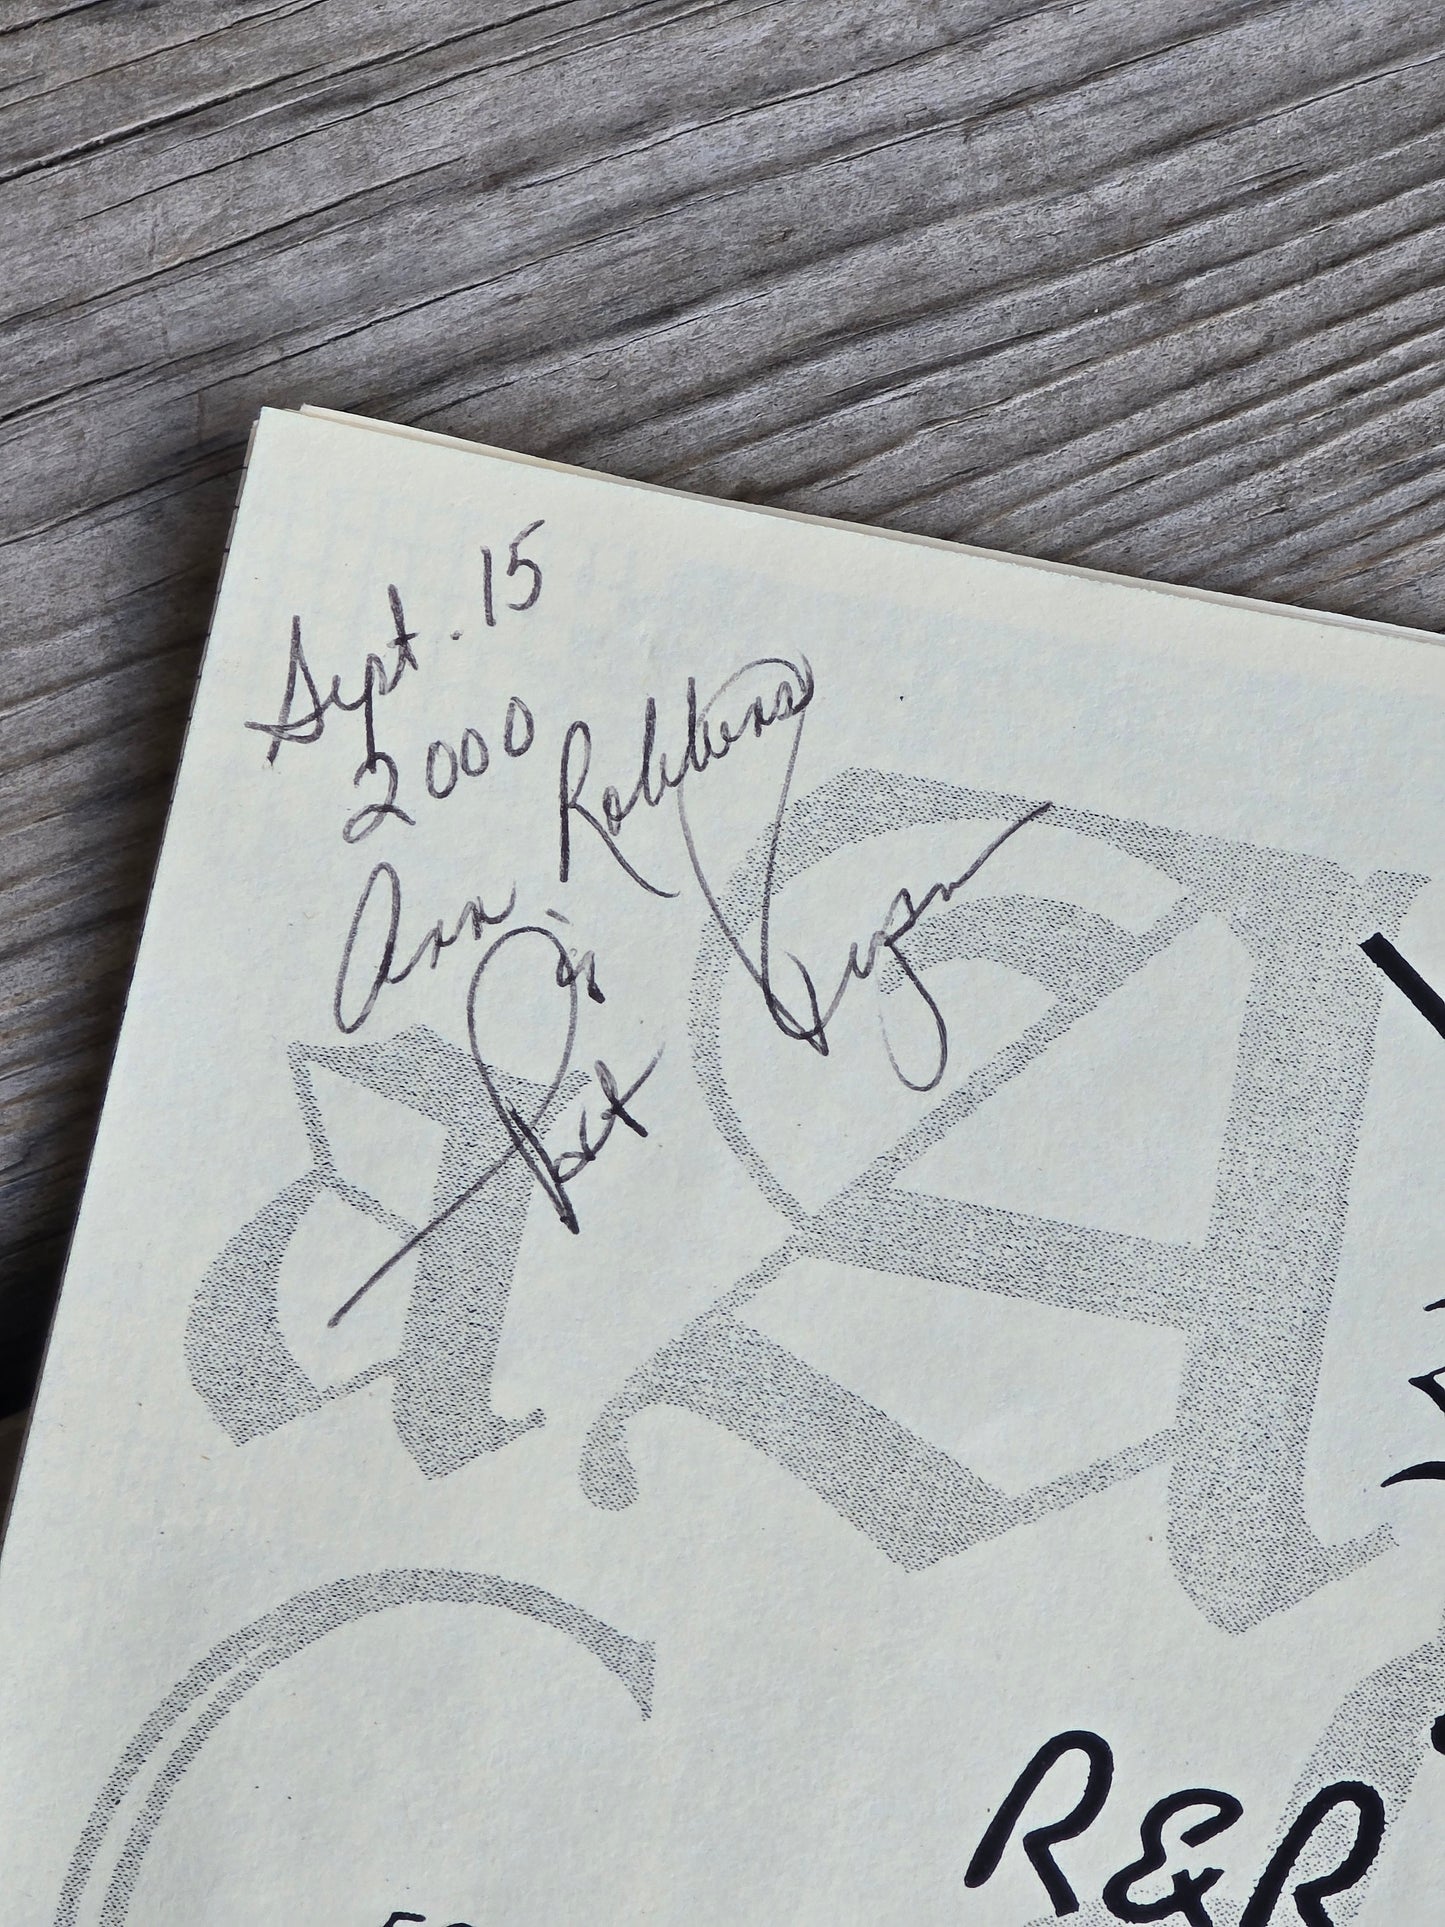 Sept. 15
2000
Ann Robbins
is
Pat
R&R